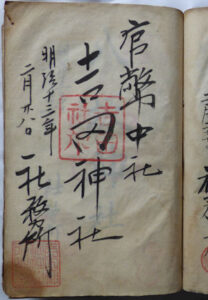 官幣中社
吉田神社
明治十三年
二月廿八日
社務所